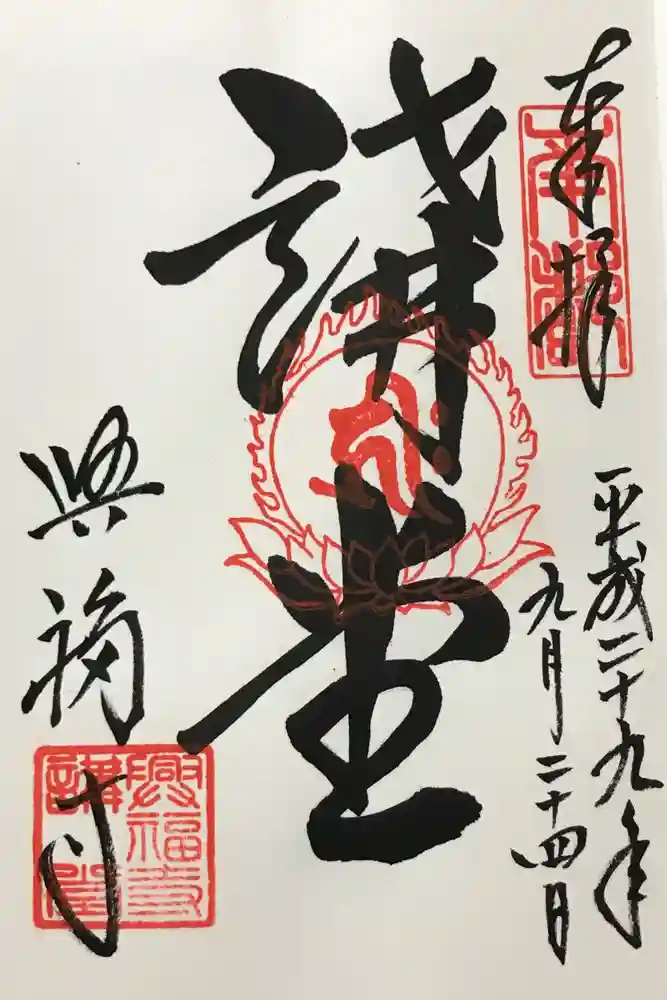 奉拝
南都
平成二十九年
九月二十四日
講堂
興福寺
興福寺
講堂